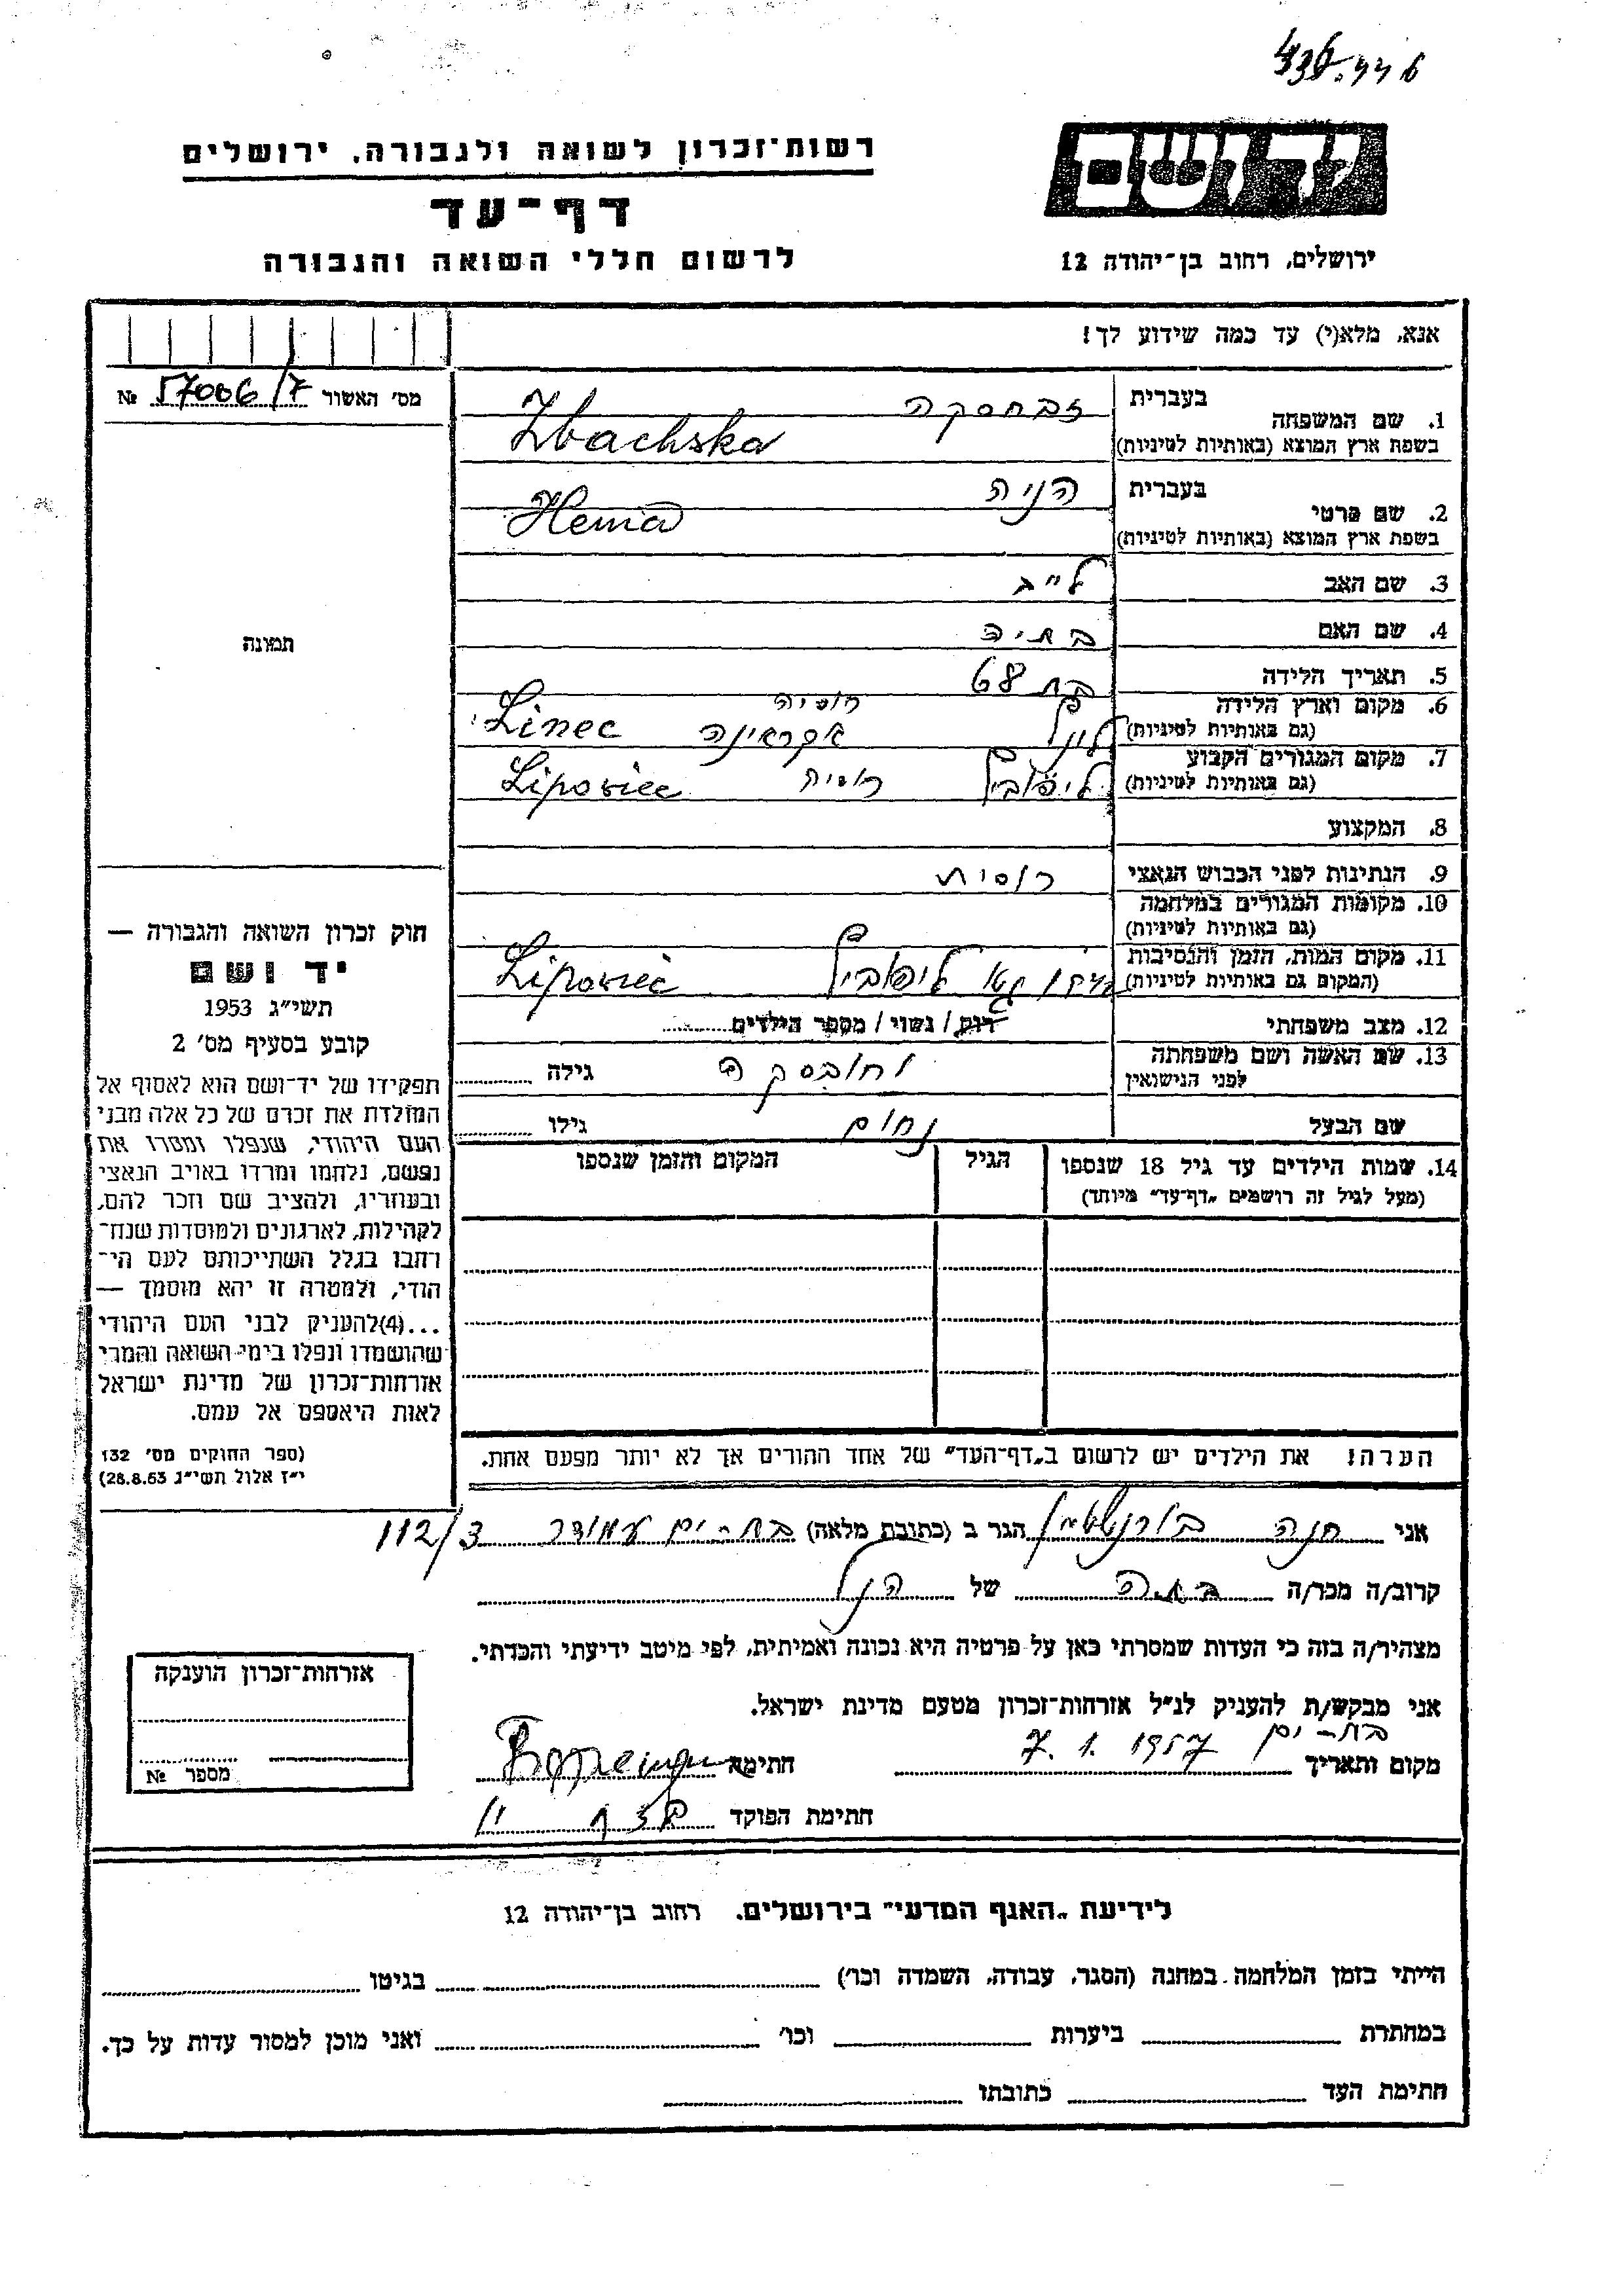 רשות־זכרון לשואה ולגבורה, ירושלים
דף־עד
לרשום חללי השואה והגבורה
יד ושם
ירושלים, רחוב בן־יהודה 12
אנא, מלא(י) עד כמה שידוע לך!
מס' האשור 57006/7 №
1. שם המשפחה
בעברית זבחסקה
בשפת ארץ המוצא (באותיות לטיניות) Zbachska
2. שם פרטי
בעברית הניה
בשפת ארץ המוצא (באותיות לטיניות) Henia
3. שם האב לייב
4. שם האם בתיה
5. תאריך הלידה בת 68
6. מקום וארץ הלידה רוסיה
(גם באותיות לטיניות) אקראינה Linec
7. מקום המגורים הקבוע
(גם באותיות לטיניות) ליפוביץ רוסיה Lipoviec
8. המקצוע
9. הנתינות לפני הכבוש הנאצי רוסית
10. מקומות המגורים במלחמה
(גם באותיות לטיניות)
11. מקום המות, הזמן והנסיבות
(המקום גם באותיות לטיניות) ליפוביץ Lipoviec
12. מצב משפחתי רוק/ נשוי/ מספר הילדים
13. שם האשה ושם משפחתה
לפני הנישואין גילה
שם הבעל נחום גילו
14. שמות הילדים עד גיל 18 שנספו הגיל המקום והזמן שנספו
(מעל לגיל זה רושמים „דף־עד" מיוחד)
הערה! את הילדים יש לרשום ב„דף־העד" של אחד ההורים אך לא יותר מפעם אחת.
תמונה
חוק זכרון השואה והגבורה —
יד ושם
תשי״ג 1953
קובע בסעיף מס' 2
תפקידו של יד־ושם הוא לאסוף אל
המולדת את זכרם של כל אלה מבני
העם היהודי, שנפלו ומסרו את
נפשם, נלחמו ומרדו באויב הנאצי
ובעוזריו, ולהציב שם וזכר להם,
לקהילות, לארגונים ולמוסדות שנח־
רהבו בגלל השתייכותם לעם הי־
הודי, ולמטרה זו יהא מוסמך —
...(4)להעניק לבני העם היהודי
שהושמדו ונפלו בימי השואה והמרי
אזרחות־זכרון של מדינת ישראל
לאות היאספם אל עמם.
(ספר החוקים מס' 132
י״ז אלול תשי״ג 28.8.53)
אני חנה בורנשטיין הגר ב (כתובת מלאה) בת-ים עמידר 112/3
קרוב/ה מכר/ה בתה של הנ״ל
מצהיר/ה בזה כי העדות שמסרתי כאן על פרטיה היא נכונה ואמיתית, לפי מיטב ידיעתי והכרתי.
אני מבקש/ת להעניק לנ״ל אזרחות־זכרון מטעם מדינת ישראל.
מקום ותאריך בת-ים 7.1.1957 חתימה
חתימת הפוקד
אזרחות־זכרון הוענקה
מספר №
לידיעת „האגף המדעי" בירושלים, רחוב בן־יהודה 12
הייתי בזמן המלחמה במחנה (הסגר, עבודה, השמדה וכו') בגיטו
במחתרת ביערות וכו' ואני מוכן למסור עדות על כך.
חתימת העד כתובתו